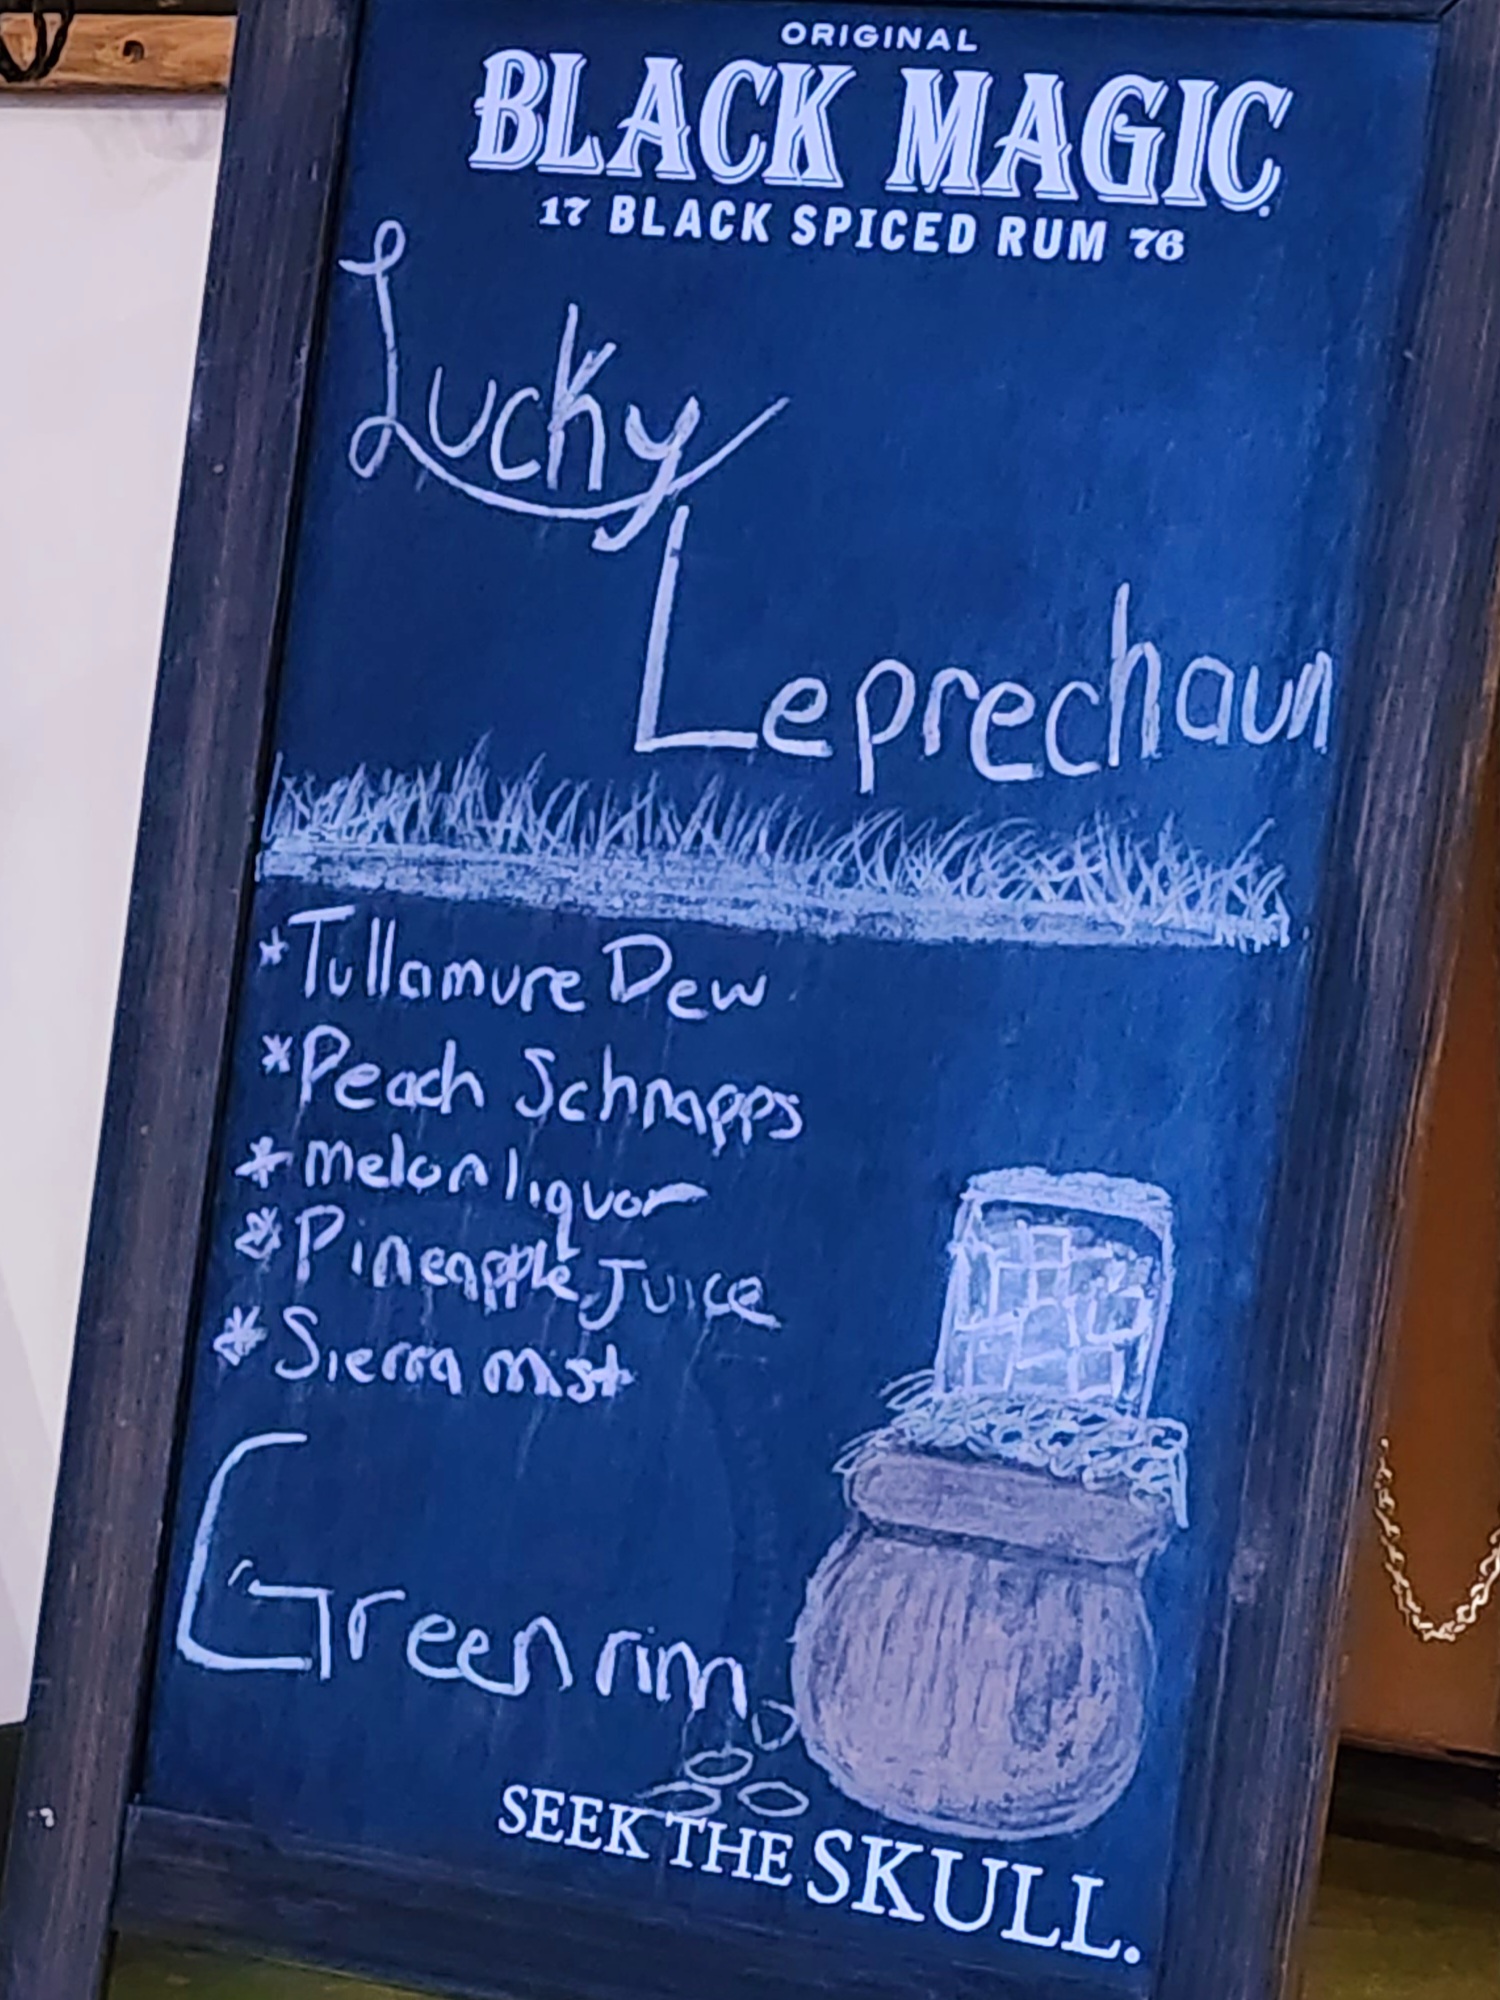 ORIGINAL
BLACK MAGIC
17 BLACK SPICED RUM 76
Lucky
Leprechaun
*Tullamure Dew
*Peach Schnapps
*melon liquor
*Pineapple Juice
*Sierra mist
Green rim
SEEK THE SKULL.